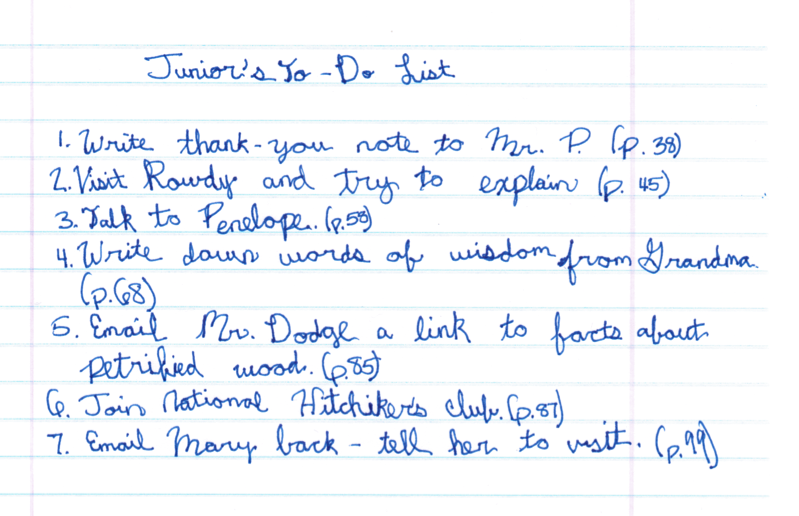 Junior's To-Do List
1. Write thank-you note to Mr. P. (p. 38)
2. Visit Rowdy and try to explain (p. 45)
3. Talk to Penelope. (p.58)
4. Write down words of wisdom from Grandma.
(p.68)
5. Email Mr. Dodge a link to facts about
petrified wood. (p.85)
6. Join National Hitchiker's club. (p.87)
7. Email Mary back - tell her to visit. (p.99)